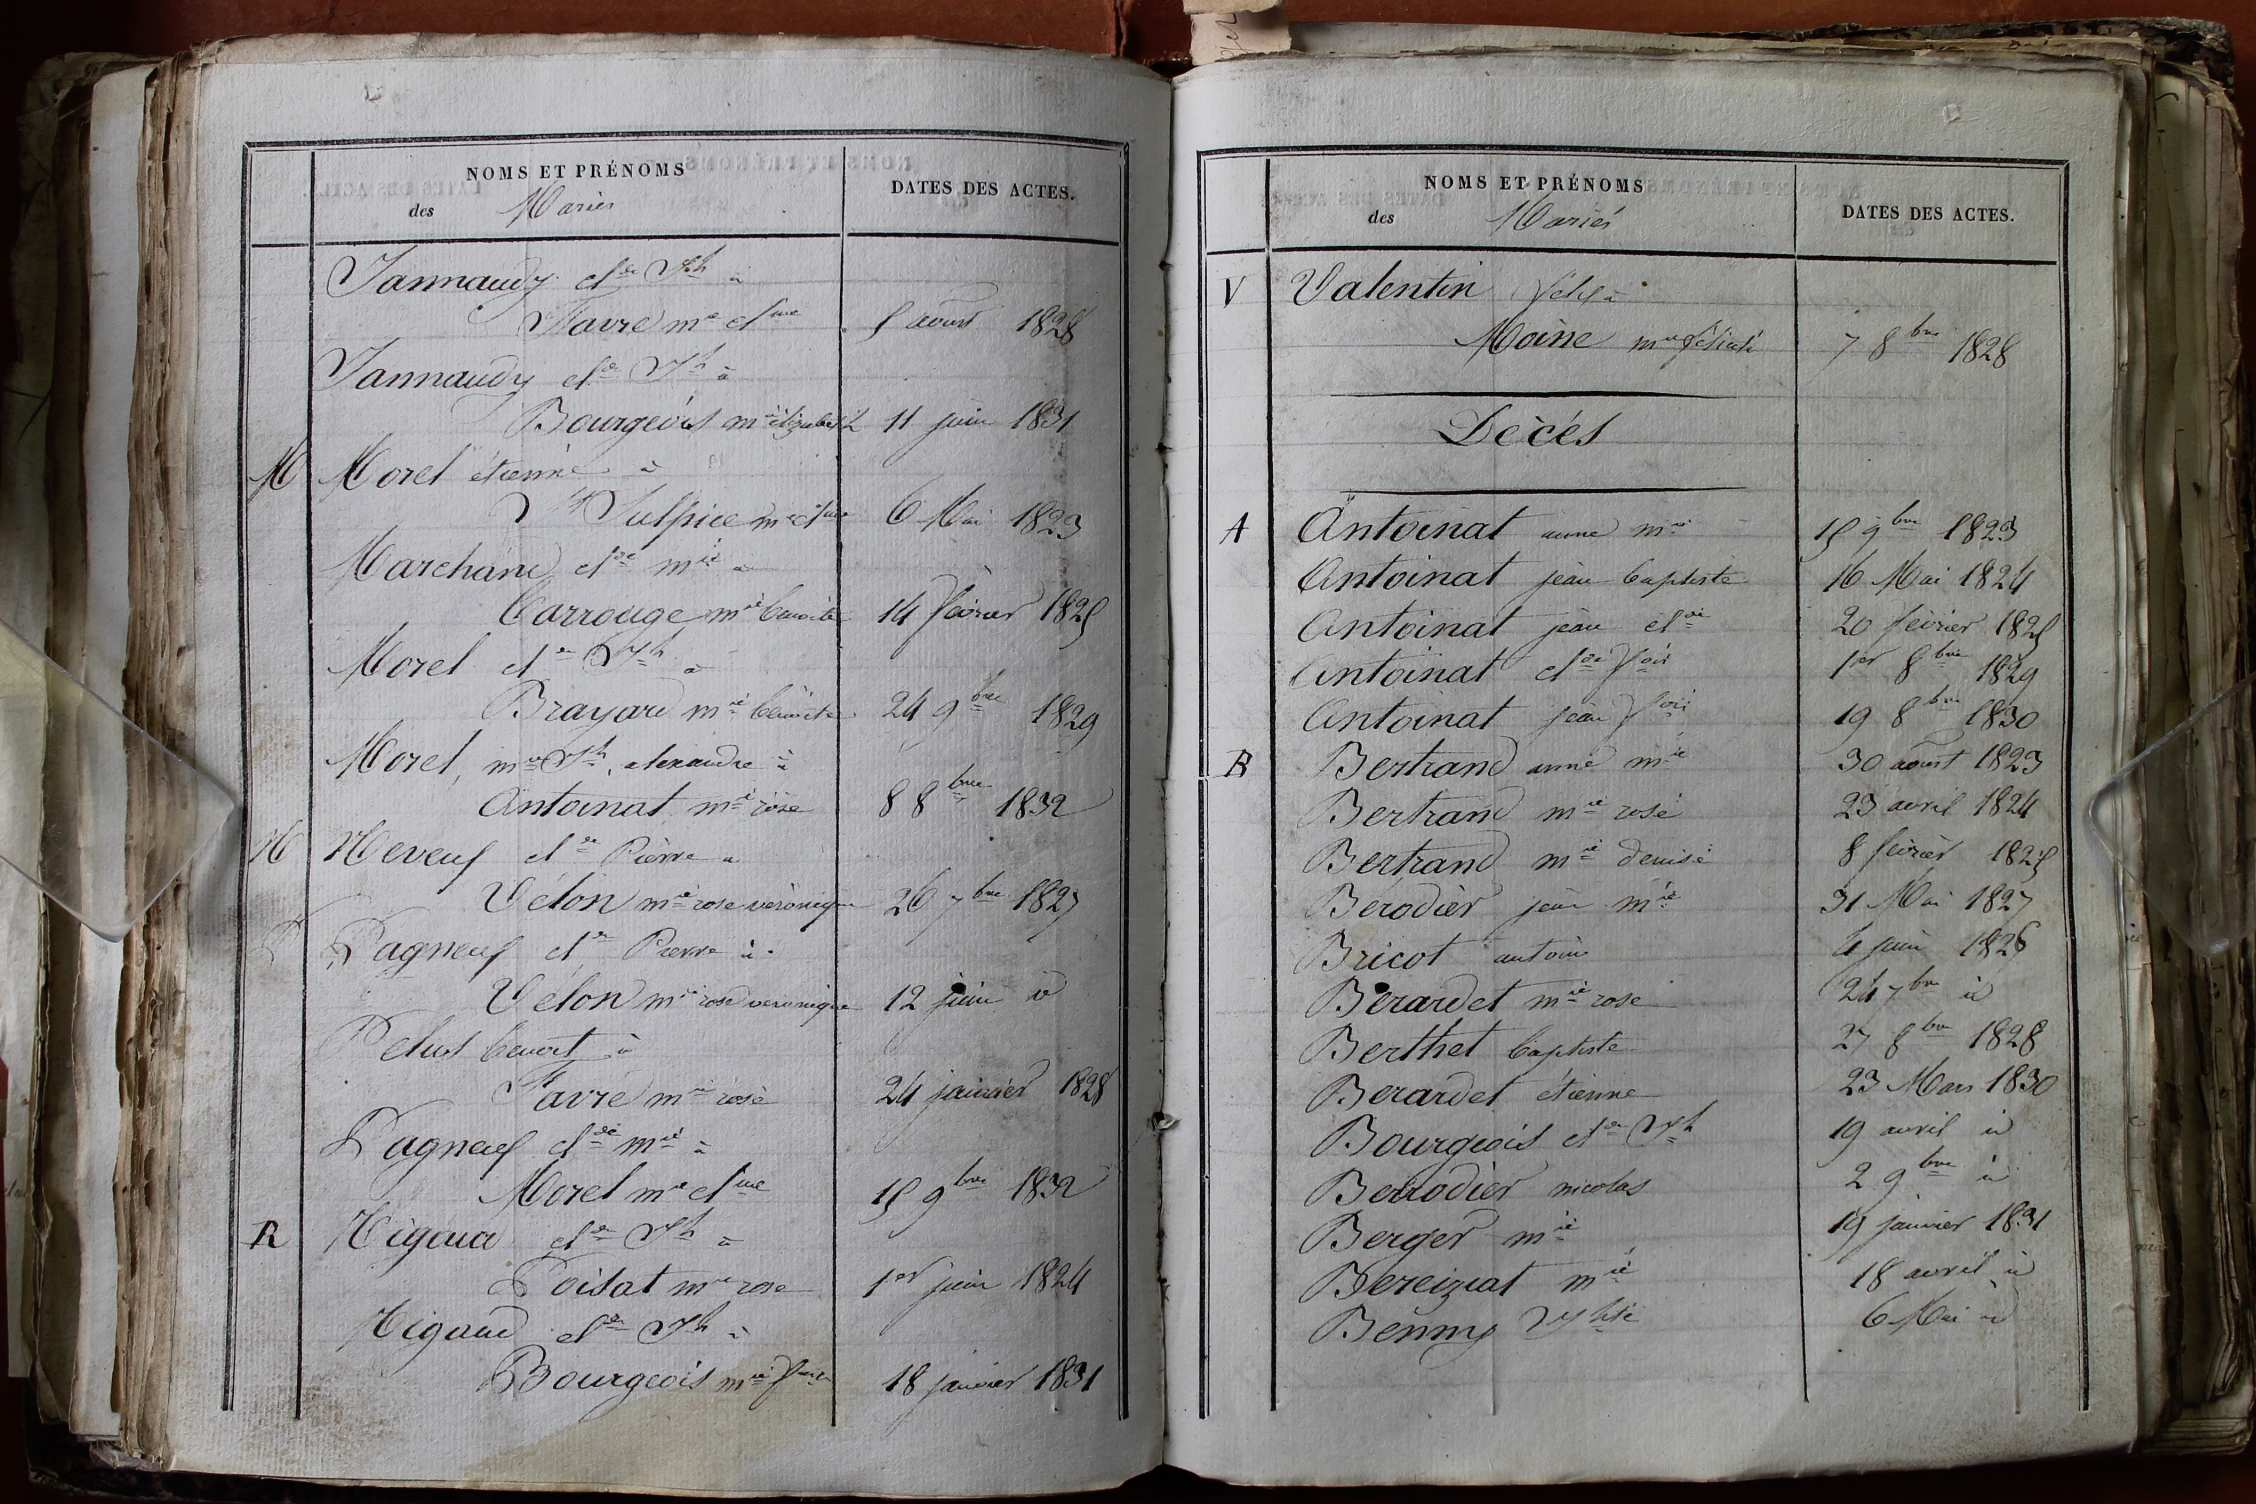 NOMS ET PRÉNOMS
des Mariés
DATES DES ACTES.
Jannaudy cl.de J.h à
Favre m.ie cl.ine 5 aoust 1828
Jannaudy cl.de J.h à
Bourgeois m.ie élizabeth 11 juin 1831
M Morel étienne à
St Sulpice m.ie cl.ine 6 Mai 1823
Marchand cl.de m.ie à
Carrouge m.ie benoite 14 février 1825
Morel cl.de J.h à
Brayard m.ie benoite 24 9bre 1829
Morel, m.ie J.h alexandre à
Antoinat m.ie rose 8 8bre 1832
N Neveuf cl.de Pierre à
Vélon m.ie rose véronique 26 7bre 1827
P Pagneuf cl.de Pierre à
Vélon m.ie rose veronique 12 juin id
Pelus benoit à
Favre m.ie rose 24 janvier 1828
Pagneuf cl.de m.ie à
Morel m.ie cl.ine 15 9bre 1832
R Rigaud cl.de J.h à
Poisat m.ie rose 1er juin 1824
Rigaud cl.de J.h à
Bourgeois m.ie 18 janvier 1831
NOMS ET PRÉNOMS
des Mariés
DATES DES ACTES.
V Valentin felix à
Moine m.ie félicité 7 8bre 1828
Décés
A Antoinat anne m.ie 15 9bre 1823
Antoinat jean baptiste 16 Mai 1824
Antoinat jean cl.de 20 février 1825
Antoinat cl.de f.ois 1er 8bre 1829
Antoinat jean f.ois 19 8bre 1830
B Bertrand anne m.ie 30 aoust 1823
Bertrand m.ie rose 23 avril 1824
Bertrand m.ie denise 8 février 1825
Bérodier jean m.ie 31 Mai 1827
Bricot antoine 4 juin 1828
Bérardet m.ie rose 24 7bre id
Berthet baptiste 27 8bre 1828
Berardet étienne 23 Mars 1830
Bourgeois cl.de J.h 19 avril id
Berrodier nicolas 2 9bre id
Berger m.ie 19 janvier 1831
Bereiziat m.ie 18 avril id
Benny 6 Mai id